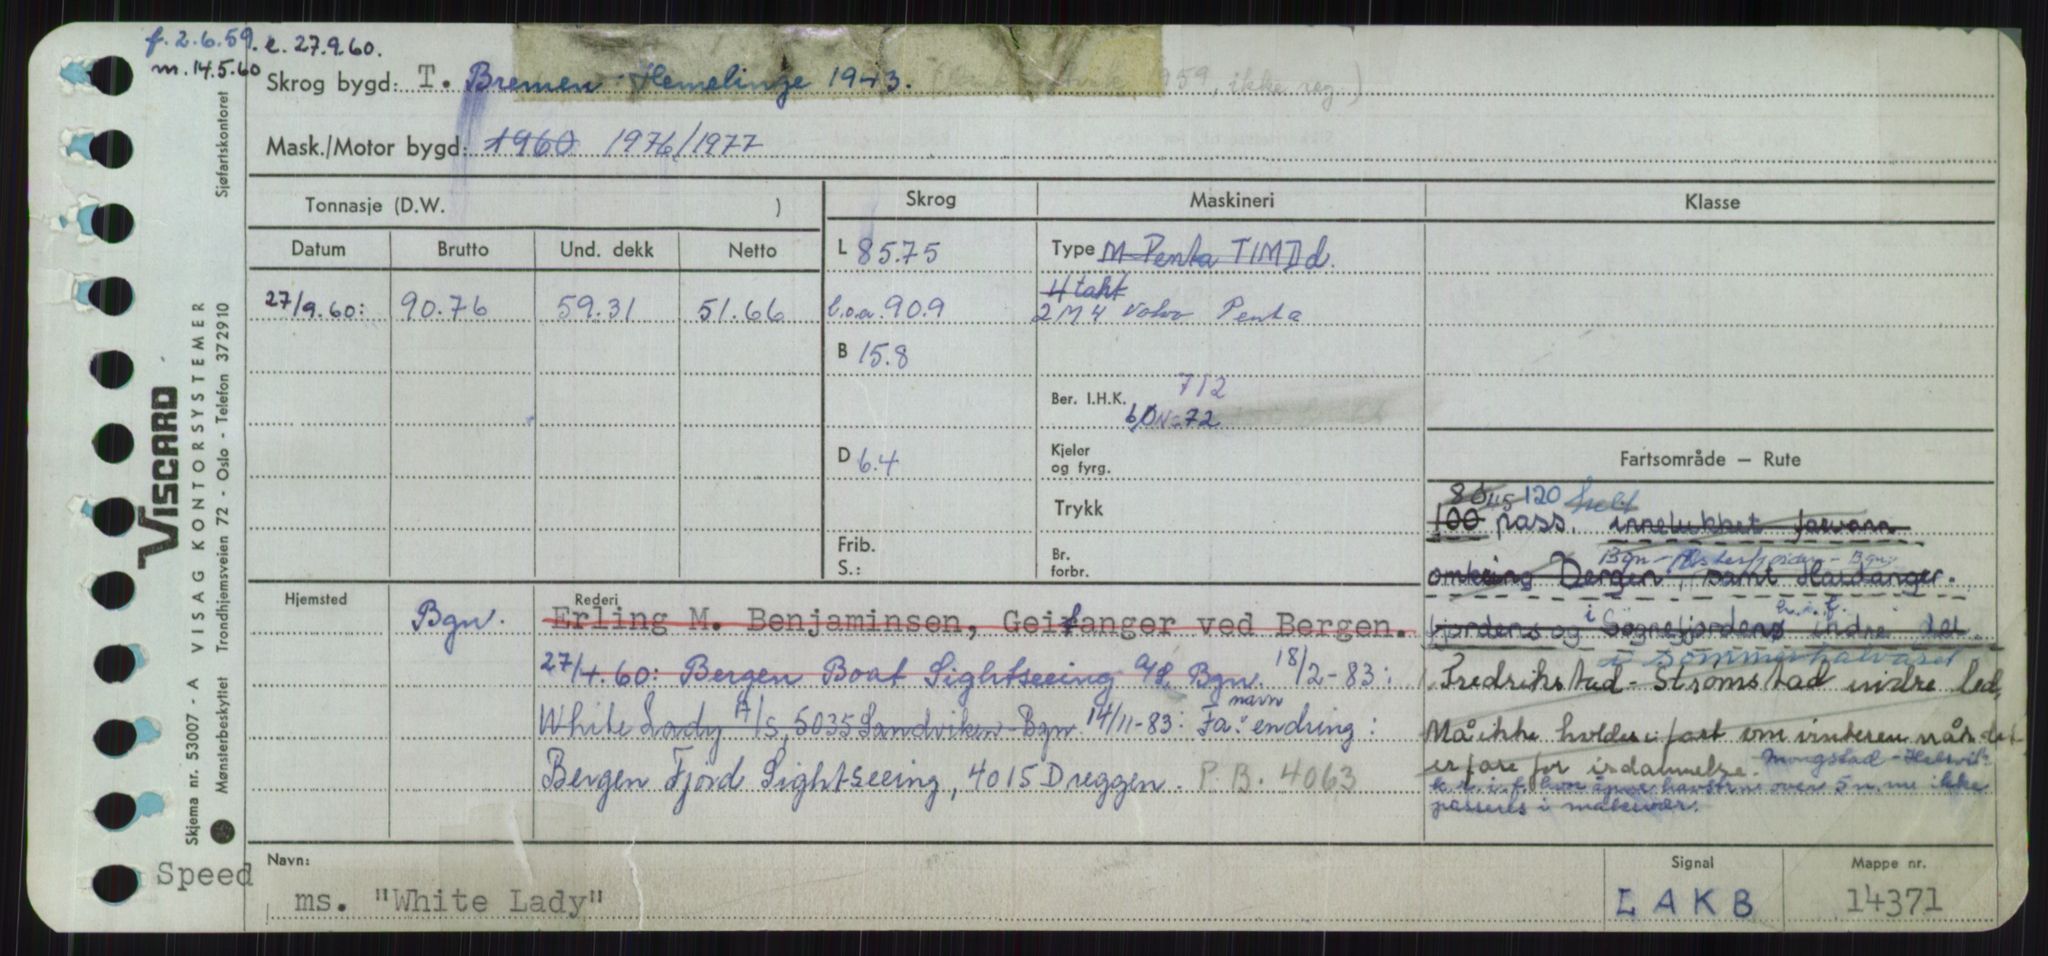 f. 2.6.59. e. 27.9.60.
m. 14.5.60
Skrog bygd: T. Bremen-Hemelinge 1943. 1959, ikke reg.)
Mask./Motor bygd: 1960 1976/1977
Tonnasje (D.W. )
Skrog
Maskineri
Klasse
Datum Brutto Und. dekk Netto
27/9.60: 90.76 59.31 51.66
L 85.75
l.o.a. 90.9
B 15.8
D 6.4
Frib.
S.:
Type M Penta TIMDd.
4 takt
2 M 4 Volvo Penta
Ber. I.H.K. 712
72
Kjeler
og fyrg.
Trykk
Br.
forbr.
Fartsområde — Rute
80 115 120
100 pass. innelukket farvann
Bgn - - Bgn
omkring Bergen, samt Hardanger.
fjordens og i Sognefjordens indre del
i sommerhalvåret
Fredrikstad - Strømstad indre led,
Må ikke holdes i fart om vinteren når det
er fare for isdannelse. Mongstad -
havstrø over 5 n.m. ikke
passeres i
Hjemsted
Bgn.
Rederi
Erling M. Benjaminsen, Geitanger ved Bergen.
27/4.60: Bergen Boat Sightseeing A/S, Bgn. 18/2-83:
White Lady A/S, 5035 Sandviken - Bgn 14/11-83: Fa. navn endring:
Bergen Fjord Sightseeing, 4015 Dreggen. P.B. 4063
Navn:
Speed
ms. "White Lady"
Signal
LAKB
Mappe nr.
14371
VISCARD
Skjema nr. 53007 - A VISAG KONTORSYSTEMER
Mønsterbeskyttet Trondhjemsveien 72 - Oslo - Telefon 372910
Sjøfartskontoret